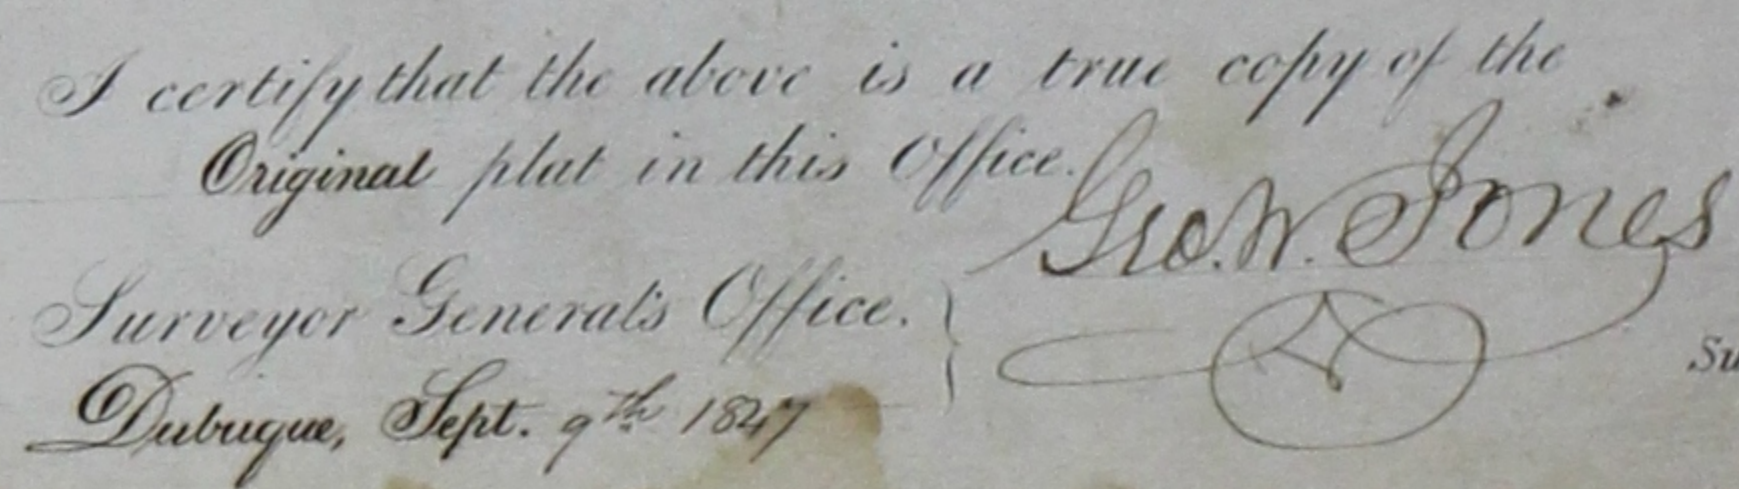 I certify that the above is a true copy of the
Original plat in this Office.
Geo. W. Jones
Surveyor General's Office.
Dubuque, Sept. 9th 1847